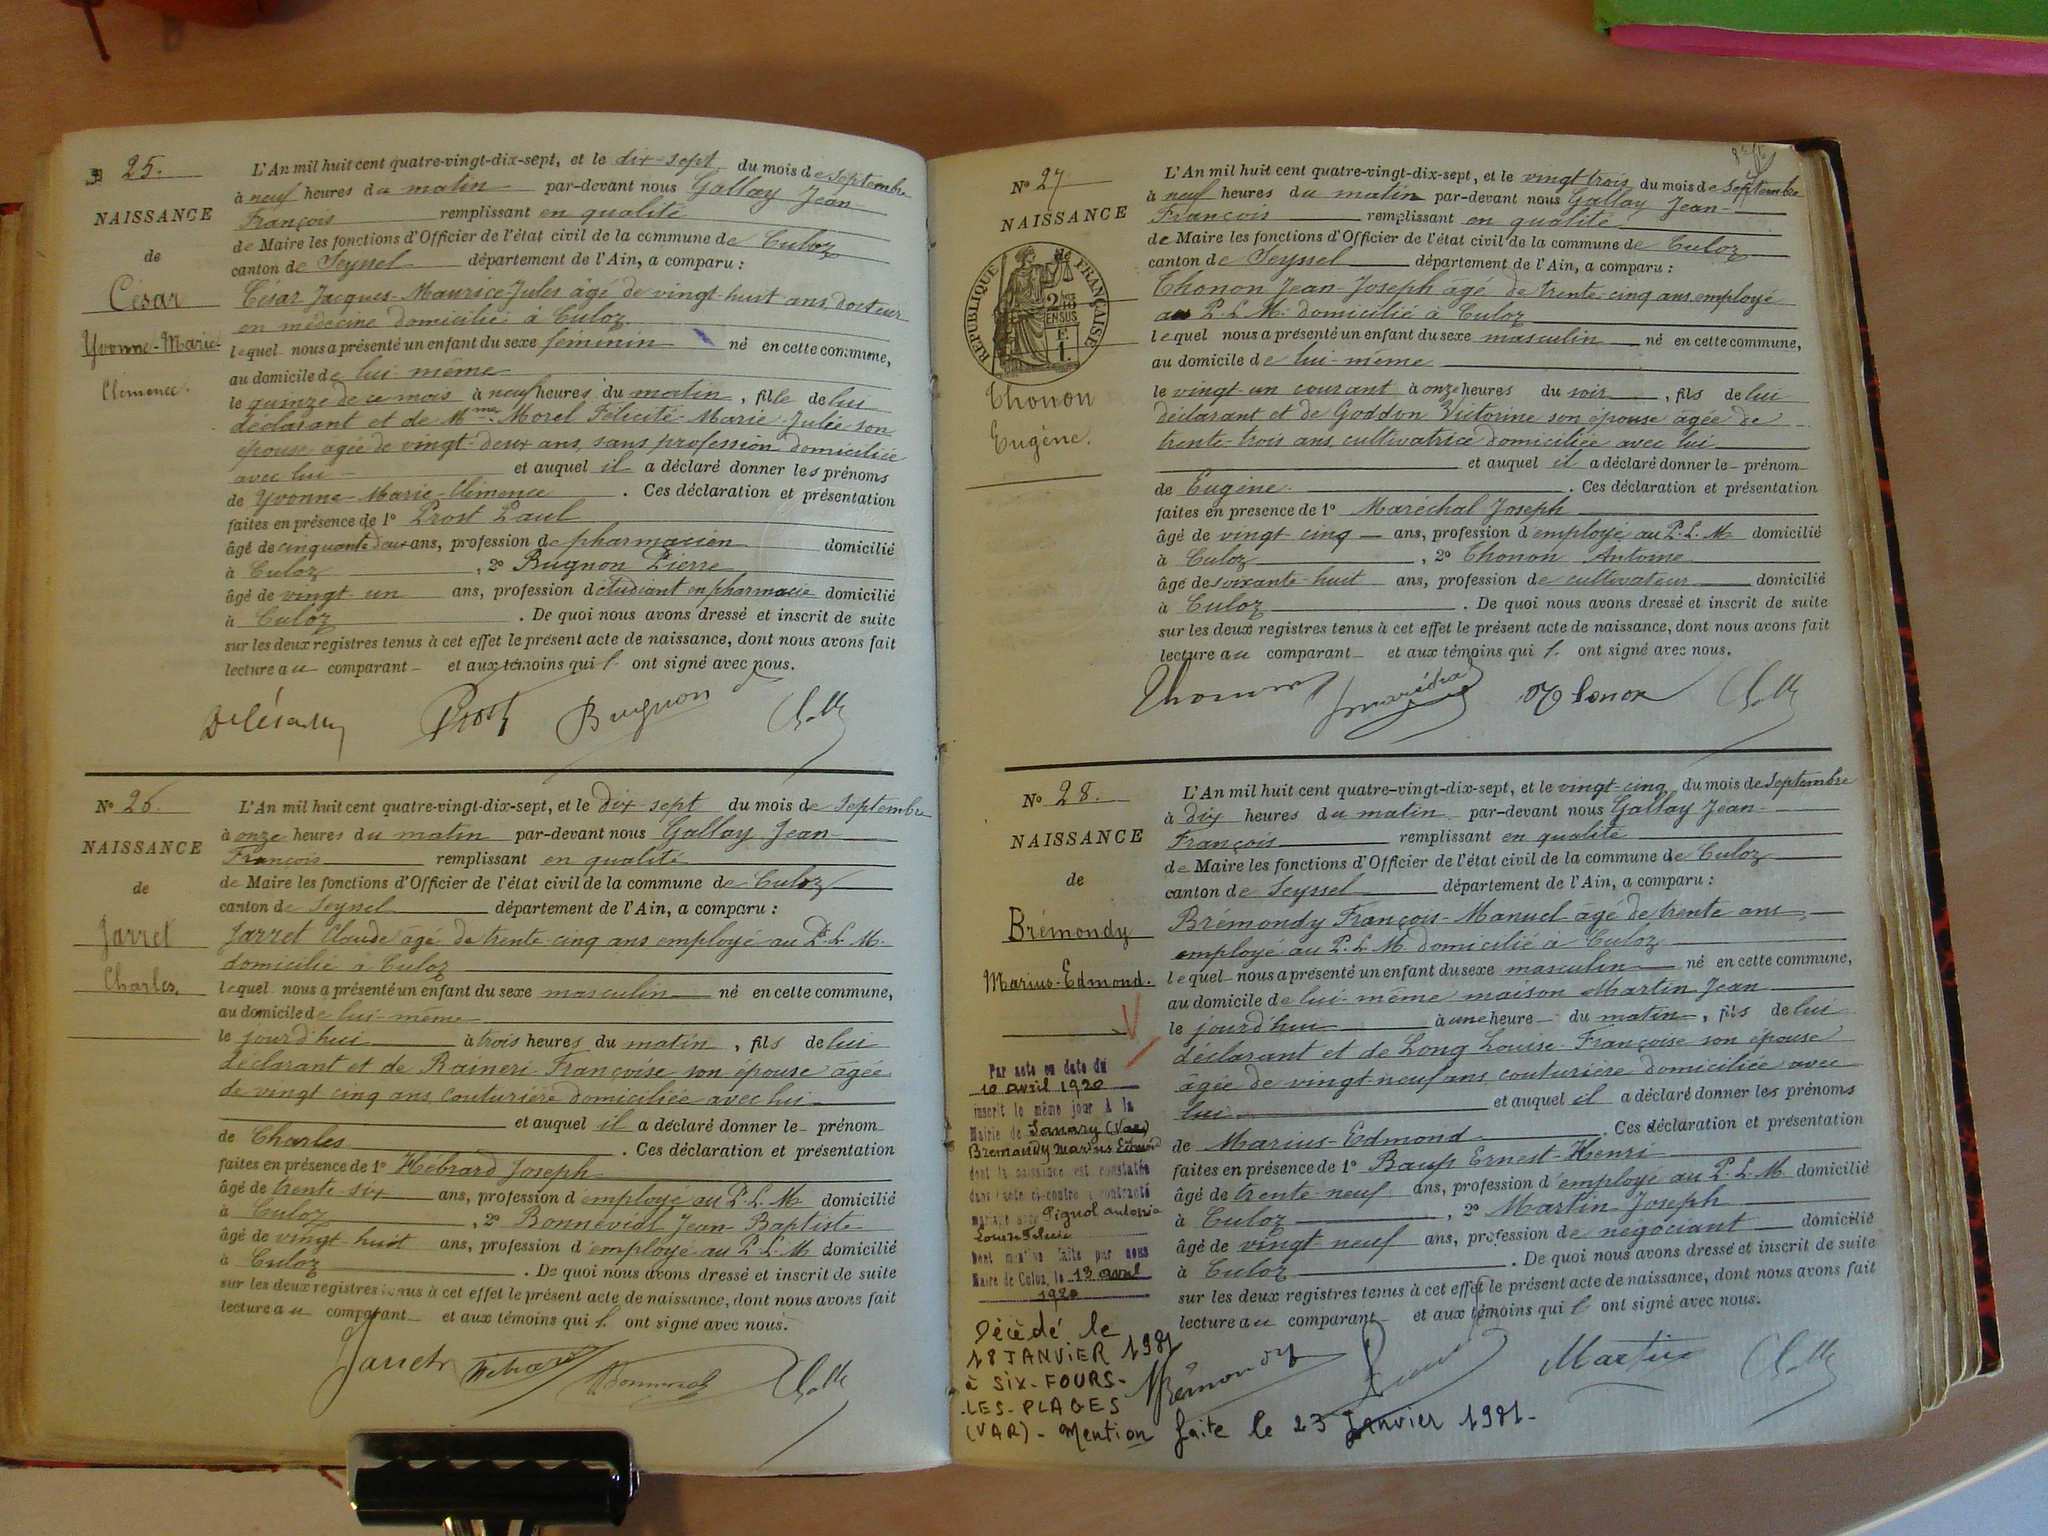 N° 25.
NAISSANCE
de
César
Yvonne-Marie-
Clémence.
L'An mil huit cent quatre-vingt-dix-sept, et le dix-sept du mois de Septembre
à neuf heures du matin par-devant nous Gallay Jean-
François remplissant en qualité
de Maire les fonctions d'Officier de l'état civil de la commune de Culoz
canton de Seyssel département de l'Ain, a comparu :
César Jacques-Maurice-Jules âgé de vingt-huit ans, docteur
en médecine domicilié à Culoz
lequel nous a présenté un enfant du sexe féminin né en cette commune,
au domicile de lui-même
le quinze de ce mois à neuf heures du matin, fille de lui
déclarant et de Mme Morel Félicité-Marie-Julie son
épouse âgée de vingt-deux ans, sans profession domiciliée
avec lui et auquel il a déclaré donner les prénoms
de Yvonne-Marie-Clémence. Ces déclaration et présentation
faites en présence de 1° Prost Paul
âgé de cinquante deux ans, profession de pharmacien domicilié
à Culoz, 2° Bugnon Pierre
âgé de vingt-un ans, profession d'étudiant en pharmacie domicilié
à Culoz. De quoi nous avons dressé et inscrit de suite
sur les deux registres tenus à cet effet le présent acte de naissance, dont nous avons fait
lecture au comparant et aux témoins qui l ont signé avec nous.
Prost Bugnon
N° 26.
NAISSANCE
de
Jarret
Charles.
L'An mil huit cent quatre-vingt-dix-sept, et le dix-sept du mois de Septembre
à onze heures du matin par-devant nous Gallay Jean-
François remplissant en qualité
de Maire les fonctions d'Officier de l'état civil de la commune de Culoz
canton de Seyssel département de l'Ain, a comparu :
Jarret Claude âgé de trente-cinq ans employé au P.L.M.
domicilié à Culoz
lequel nous a présenté un enfant du sexe masculin né en cette commune,
au domicile de lui-même
le jourd'hui à trois heures du matin, fils de lui
déclarant et de Raineri Françoise son épouse âgée
de vingt cinq ans couturière domiciliée avec lui
et auquel il a déclaré donner le prénom
de Charles. Ces déclaration et présentation
faites en présence de 1° Hébrard Joseph
âgé de trente-six ans, profession d'employé au P.L.M. domicilié
à Culoz, 2° Bonneviat Jean-Baptiste
âgé de vingt huit ans, profession d'employé au P.L.M. domicilié
à Culoz. De quoi nous avons dressé et inscrit de suite
sur les deux registres tenus à cet effet le présent acte de naissance, dont nous avons fait
lecture au comparant et aux témoins qui l ont signé avec nous.
N° 27
NAISSANCE
de
RÉPUBLIQUE FRANÇAISE
Thonon
Eugène.
L'An mil huit cent quatre-vingt-dix-sept, et le vingt trois du mois de Septembre
à neuf heures du matin par-devant nous Gallay Jean-
François remplissant en qualité
de Maire les fonctions d'Officier de l'état civil de la commune de Culoz
canton de Seyssel département de l'Ain, a comparu :
Thonon Jean-Joseph âgé de trente-cinq ans employé
au P.L.M. domicilié à Culoz
lequel nous a présenté un enfant du sexe masculin né en cette commune,
au domicile de lui-même
le vingt-un courant à onze heures du soir, fils de lui
déclarant et de Goddon Victorine son épouse âgée de
trente-trois ans cultivatrice domiciliée avec lui
et auquel il a déclaré donner le prénom
de Eugène. Ces déclaration et présentation
faites en présence de 1° Maréchal Joseph
âgé de vingt-cinq ans, profession d'employé au P.L.M. domicilié
à Culoz, 2° Thonon Antoine
âgé de soixante-huit ans, profession de cultivateur domicilié
à Culoz. De quoi nous avons dressé et inscrit de suite
sur les deux registres tenus à cet effet le présent acte de naissance, dont nous avons fait
lecture au comparant et aux témoins qui l ont signé avec nous.
Thonon
N° 28.
NAISSANCE
de
Brémondy
Marius-Edmond.
L'An mil huit cent quatre-vingt-dix-sept, et le vingt-cinq du mois de Septembre
à dix heures du matin par-devant nous Gallay Jean-
François remplissant en qualité
de Maire les fonctions d'Officier de l'état civil de la commune de Culoz
canton de Seyssel département de l'Ain, a comparu :
Brémondy François-Manuel âgé de trente ans
employé au P.L.M. domicilié à Culoz
lequel nous a présenté un enfant du sexe masculin né en cette commune,
au domicile de lui-même maison Martin Jean
le jourd'hui à une heure du matin, fils de lui
déclarant et de Long Louise-Françoise son épouse
âgée de vingt-neuf ans couturière domiciliée avec
lui et auquel il a déclaré donner les prénoms
de Marius-Edmond. Ces déclaration et présentation
faites en présence de 1° Baup Ernest-Henri
âgé de trente-neuf ans, profession d'employé au P.L.M. domicilié
à Culoz, 2° Martin Joseph
âgé de vingt-neuf ans, profession de négociant domicilié
à Culoz. De quoi nous avons dressé et inscrit de suite
sur les deux registres tenus à cet effet le présent acte de naissance, dont nous avons fait
lecture au comparant et aux témoins qui l ont signé avec nous.
Par acte en date du
10 avril 1920
inscrit le même jour à la
Mairie de Sanary (Var)
Bremondy Marius Edmond
dont la naissance est constatée
dans l'acte ci-contre a contracté
mariage avec Pignol
Dont mention faite par nous
Maire de Culoz, le 13 avril
1920
Décédé le
18 JANVIER 1981
à SIX-FOURS-
-LES-PLAGES
(VAR)- Mention faite le 23 Janvier 1981-
Brémondy Martin